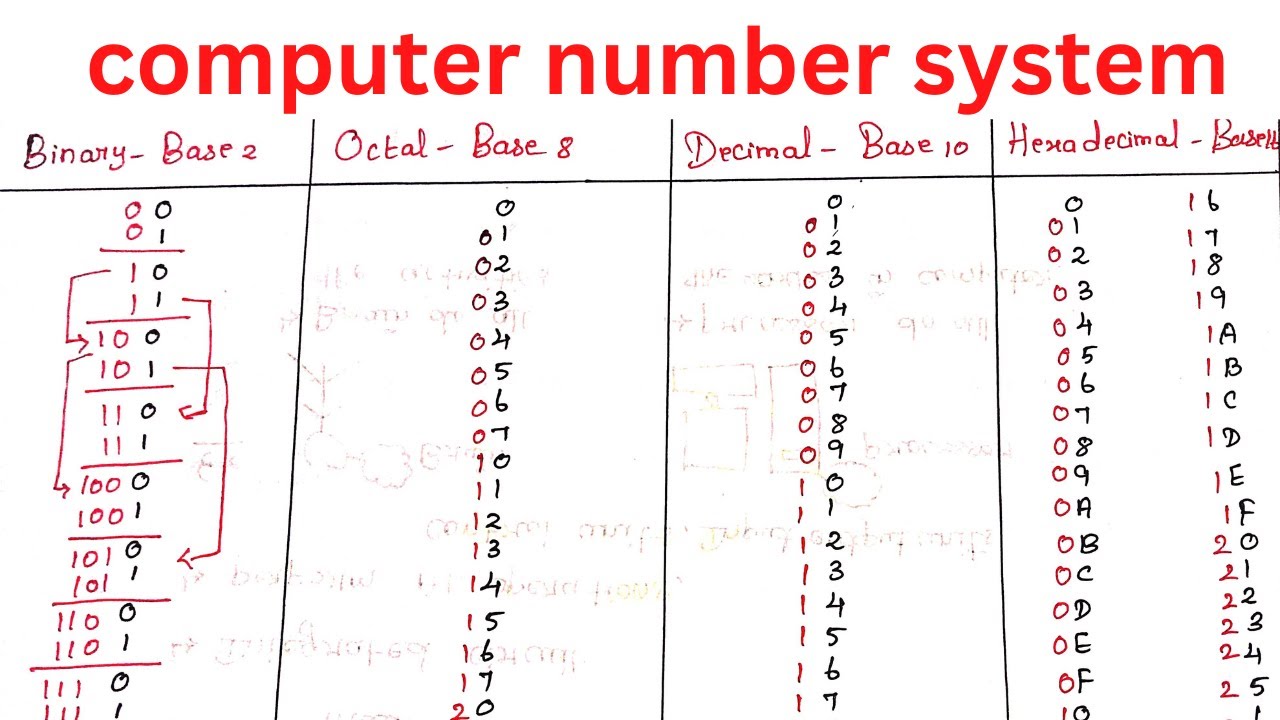 computer number system
Binary - Base 2
00
01
10
11
100
101
110
111
1000
1001
1010
1011
1100
1101
1110
1111
Octal - Base 8
0
01
02
03
04
05
06
07
10
11
12
13
14
15
16
17
20
Decimal - Base 10
0
01
02
03
04
05
06
07
08
09
10
11
12
13
14
15
16
17
Hexadecimal - Base16
0
01
02
03
04
05
06
07
08
09
0A
0B
0C
0D
0E
0F
10
16
17
18
19
1A
1B
1C
1D
1E
1F
20
21
22
23
24
25